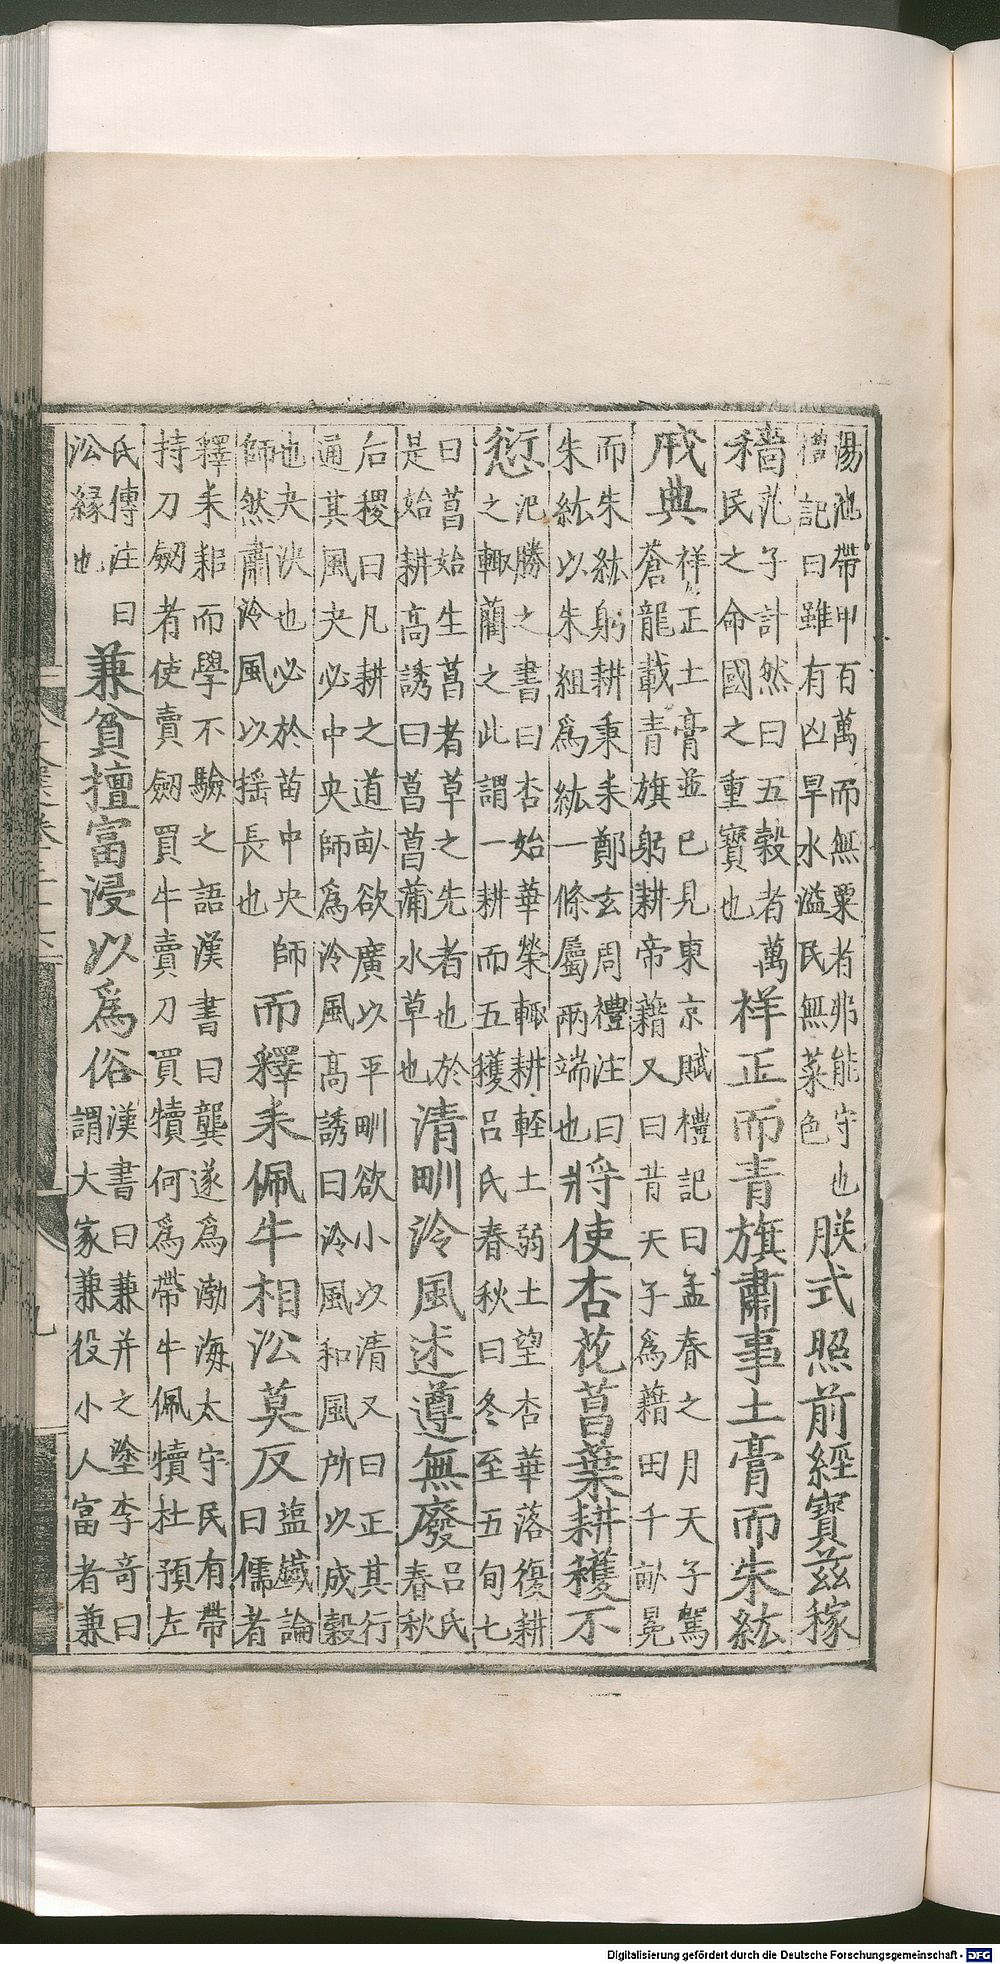 湯池帶甲百萬而無粟者弗能守也禮記曰雖有凶旱水溢民無菜色朕式照前經寶茲稼
穡氾子計然曰五穀者萬民之命國之重寶也祥正而青旗肅事土膏而朱紘
戒典祥正土膏並已見東京賦禮記曰孟春之月天子駕蒼龍載青旗躬耕帝籍又曰昔天子為藉田千畝冕
而朱紘躬耕秉耒鄭玄周禮注曰朱紘以朱組為紘一條屬兩端也將使杏花菖葉耕穫不
愆氾勝之書曰杏始華榮輙耕輕土弱土望杏華落復耕之輙藺之此謂一耕而五獲呂氏春秋曰冬至五旬七
曰菖始生菖者草之先者也於是始耕高誘曰菖菖蒲水草也清甽泠風述遵無廢呂氏春秋
后稷曰凡耕之道畝欲廣以平甽欲小以清又曰正其行通其風夬必中央師為泠風高誘曰泠風和風所以成穀
也夬決也必於苗中央師師然肅泠風以搖長也而釋耒佩牛相沿莫反塩鐵論曰儒者
釋耒耜而學不驗之語漢書曰龔遂為渤海太守民有帶持刀劒者使賣劒買牛賣刀買犢何為帶牛佩犢杜預左
氏傳注曰沿緣也兼貧擅富浸以為俗漢書曰兼并之塗李奇曰謂大家兼役小人富者兼
Digitalisierung gefördert durch die Deutsche Forschungsgemeinschaft - DFG